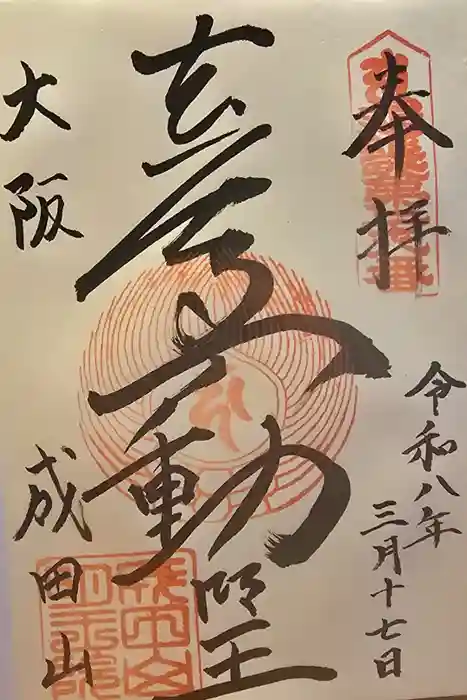 奉拝
令和八年
三月十七日
不動明王
大阪
成田山